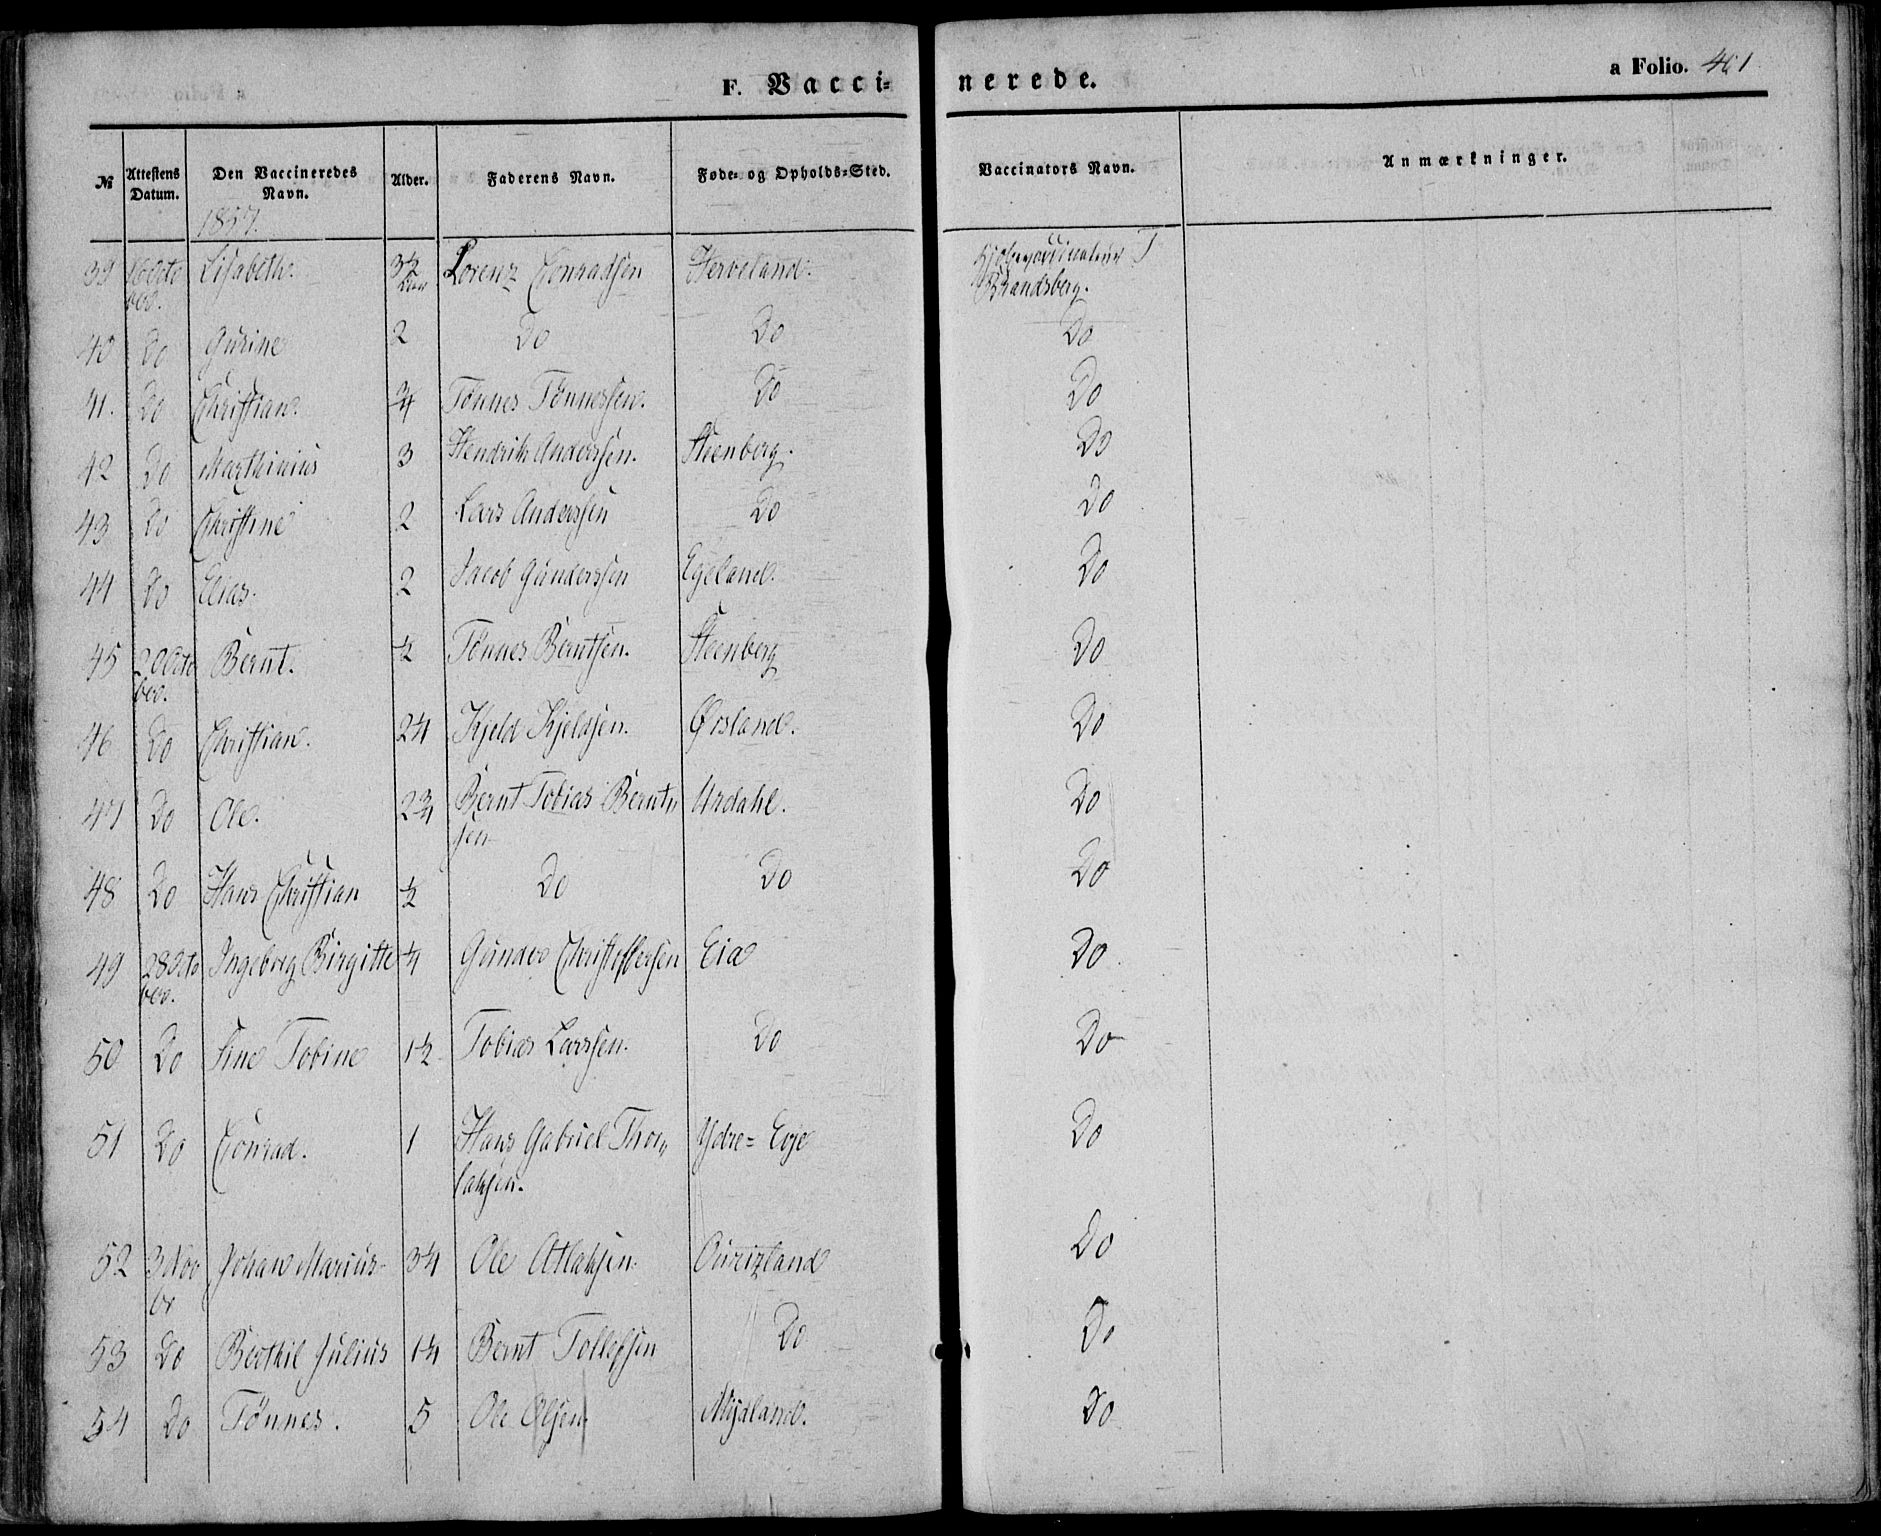 F. Vaccinerede.
a Folio. 461
№ Attestens Datum. Den Vaccineredes Navn. Alder. Faderens Navn. Føde- og Opholds-Sted. Vaccinators Navn. Anmærkninger.
1857.
39 16 Octo ber. Lisabeth. 3½ Lorenz Conradsen Herveland. Hjelpevaccinateur T Brandsberg.
40 Do Gurine 2 Do Do Do
41. Do Christian. ¾ Tönnes Tönnessen. Do Do
42 Do Marthinius 3 Hendrik Anderssen. Steenberg. Do
43 Do Christine 2 Lars Anderssen Do Do
44 Do Elias. 2 Jacob Gunderssen Egeland. Do
45 20 Octo ber. Bernt. ½ Tönnes Berntsen. Steenberg Do
46 Do Christian. 2¼ Kjeld Kjeldsen. Ørsland. Do
47 Do Ole. 2¾ Bernt Tobias Bernt„ sen Ardahl. Do
48 Do Hans Christian ½ Do Do Do
49 28 Octo ber. Ingeborg Birgitte ¼ Gunder Christoffersen Eia Do
50 Do Sine Tobine 1½ Tobias Larssen. Do Do
51 Do Conrad. 1 Hans Gabriel Thor„ laksen. Ydre= Eeje Do
52 3 Nov br Johan Marius ¾ Ole Atlaksen. Do
53 Do Berthil Julius 1¼ Bernt Tollefsen Do Do
54 Do Tönnes. 5 Ole Olsen Mydland. Do